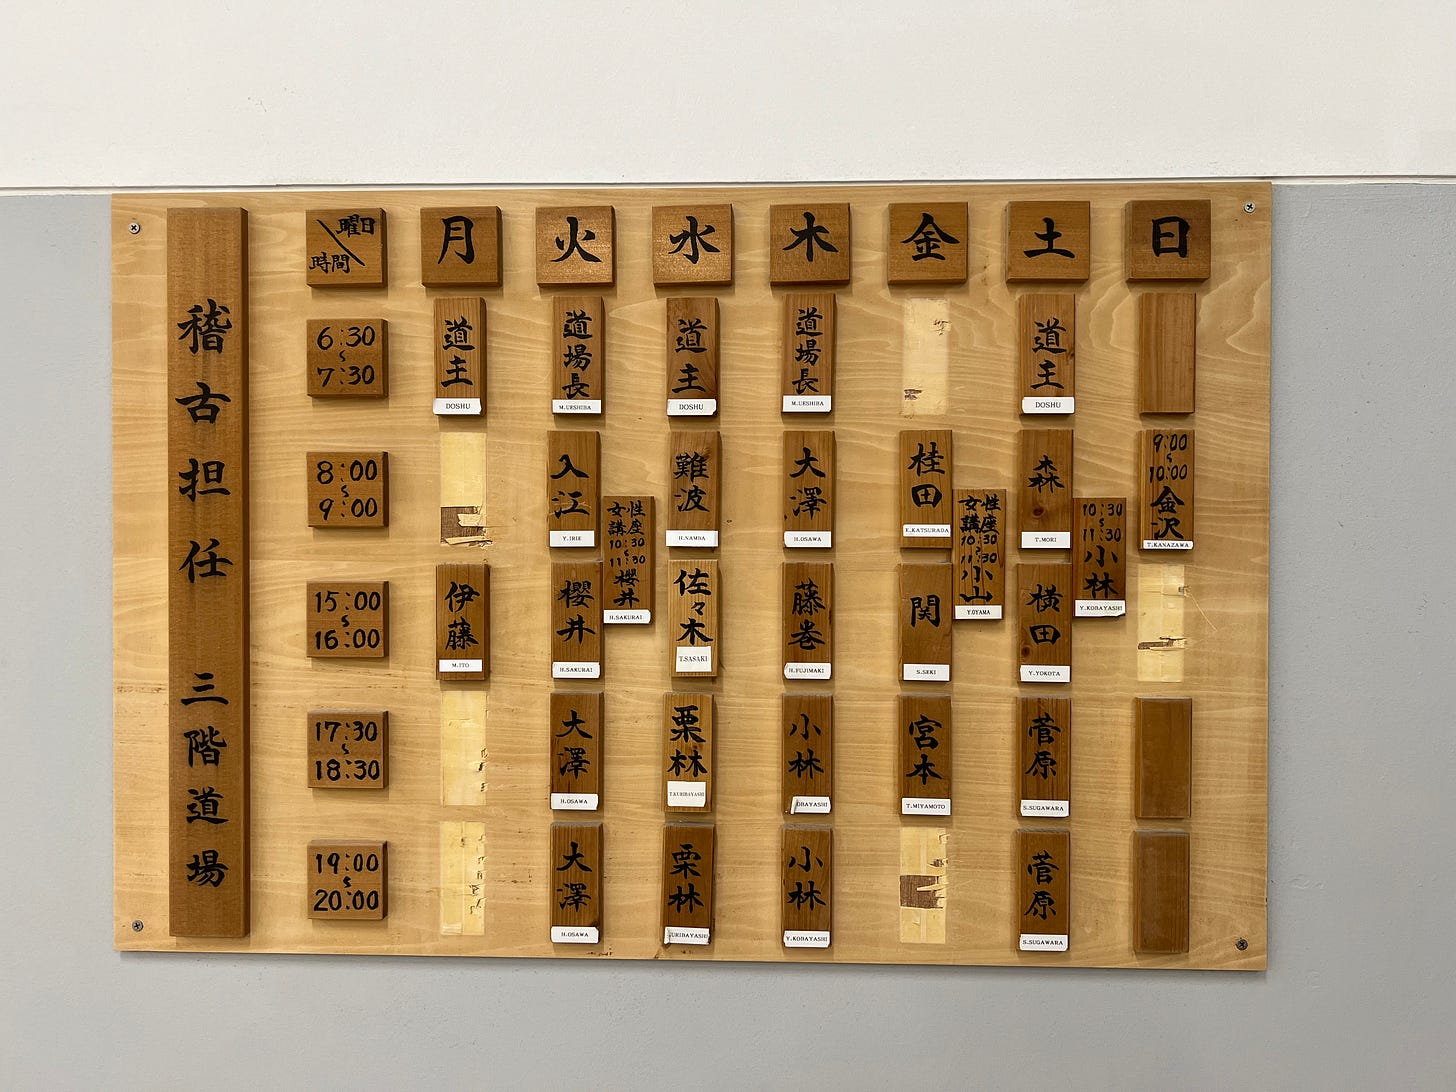 稽古担任 三階道場
曜日
時間
月 火 水 木 金 土 日
6:30
〜
7:30
道主
DOSHU
道場長
M.UESHIBA
道主
DOSHU
道場長
M.UESHIBA
道主
DOSHU
8:00
〜
9:00
入江
Y.IRIE
女性
講座
10:30
〜
11:30
櫻井
H.SAKURAI
難波
H.NAMBA
大澤
H.OSAWA
桂田
E.KATSURADA
女性
講座
10:30
〜
11:30
小山
Y.OYAMA
森
T.MORI
10:30
〜
11:30
小林
Y.KOBAYASHI
9:00
〜
10:00
金沢
T.KANAZAWA
15:00
〜
16:00
伊藤
M.ITO
櫻井
H.SAKURAI
佐々木
T.SASAKI
藤巻
H.FUJIMAKI
関
S.SEKI
横田
Y.YOKOTA
17:30
〜
18:30
大澤
H.OSAWA
栗林
T.KURIBAYASHI
小林
OBAYASHI
宮本
T.MIYAMOTO
菅原
S.SUGAWARA
19:00
〜
20:00
大澤
H.OSAWA
栗林
URIBAYASHI
小林
Y.KOBAYASHI
菅原
S.SUGAWARA